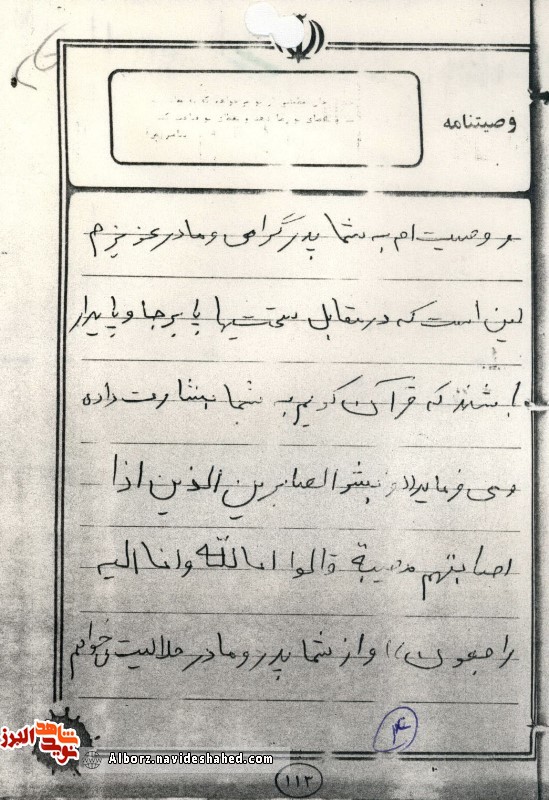 وصیتنامه
و وصیت ام به شما پدر گرامی و مادر عزیزم
این است که در مقابل سختیها پا برجا و پایدار
باشند که قرآن کریم به شما بشارت داده
و می فرماید (( و بشر الصابرین الذین اذا
اصابتهم مصیبة قالوا انا لله و انا الیه
راجعون )) و از شما پدر و مادر حلالیت می خواهم
۴
شاهد
نوید البرز
Alborz.navideshahed.com
۱۱۳